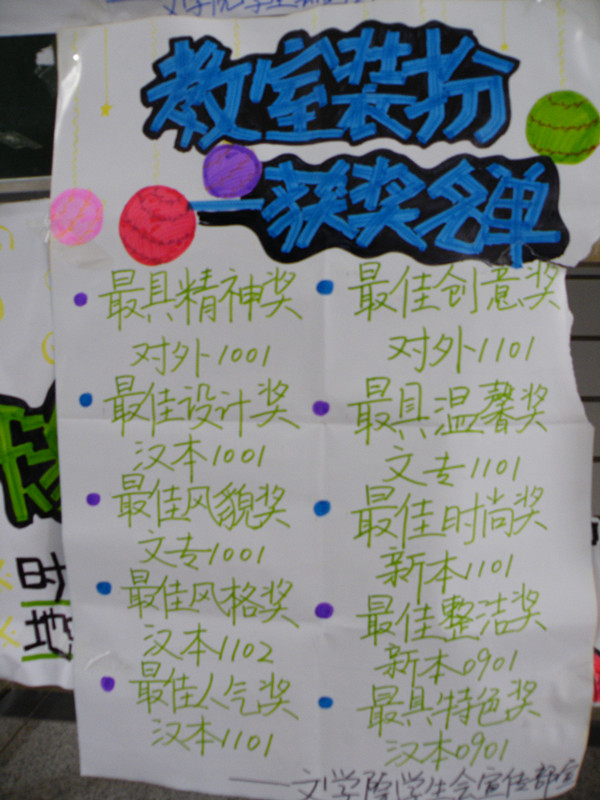 教室装扮
——获奖名单
最具精神奖
对外1001
最佳设计奖
汉本1001
最佳风貌奖
文专1001
最佳风格奖
汉本1102
最佳人气奖
汉本1101
最佳创意奖
对外1101
最具温馨奖
文专1101
最佳时尚奖
新本1101
最佳整洁奖
新本0901
最具特色奖
汉本0901
——文学院学生会宣传部宣
时
地